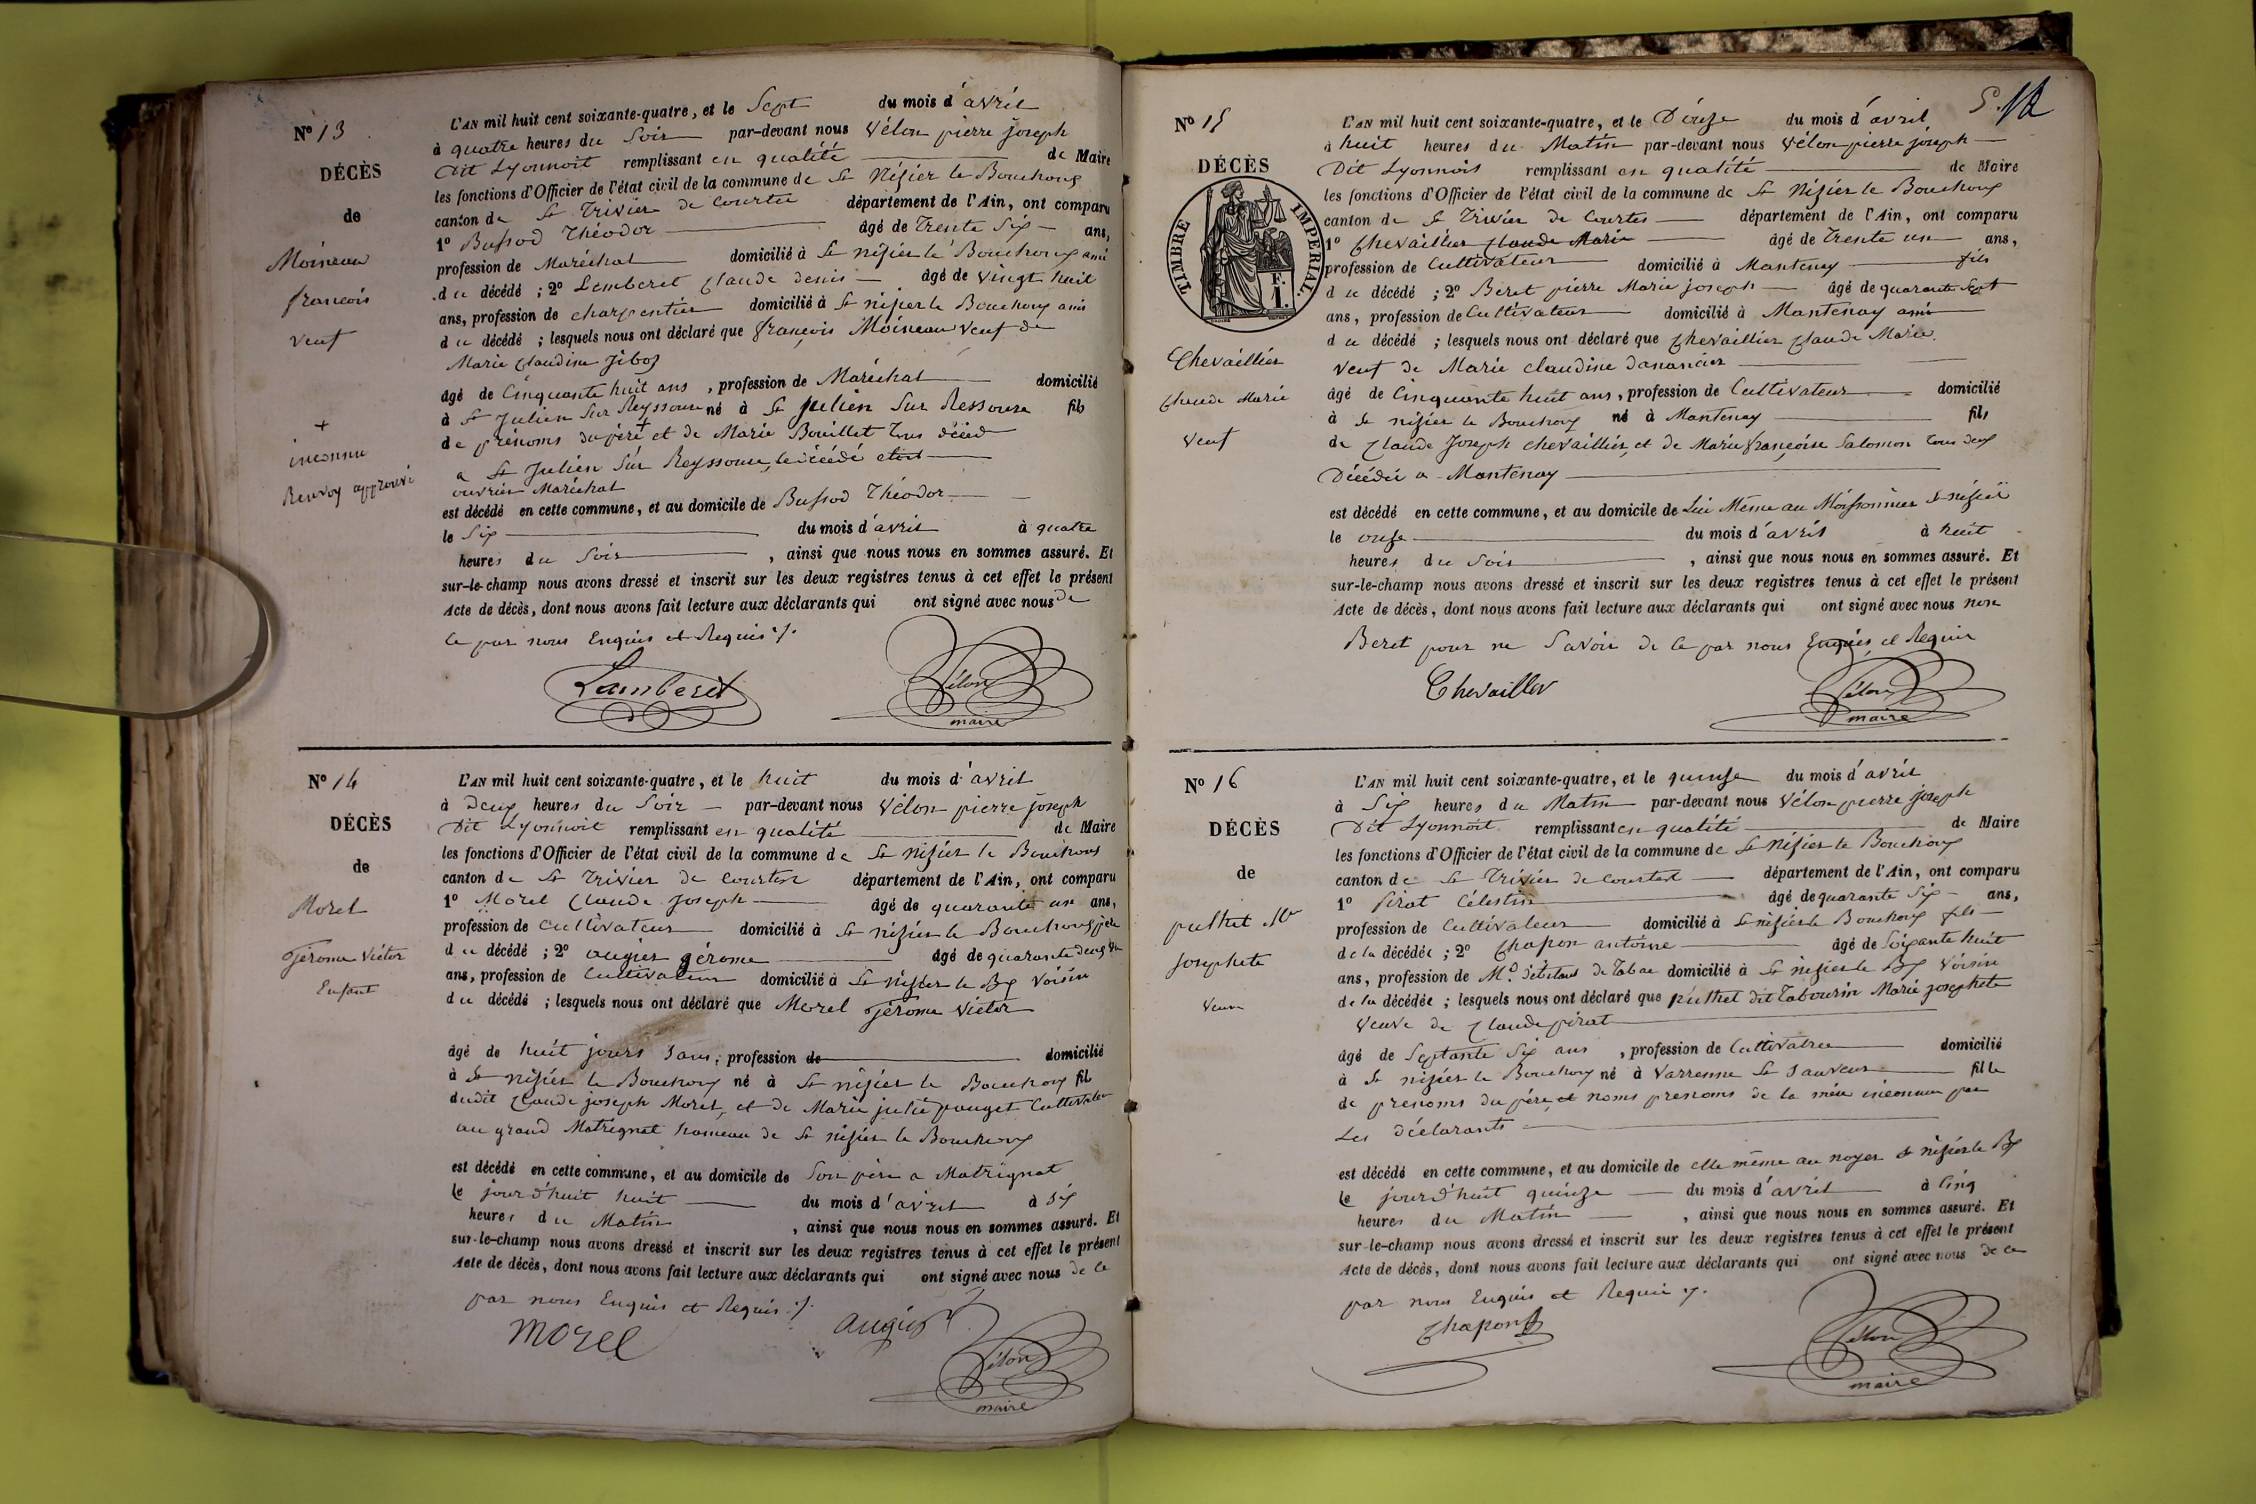 N° 13
DÉCÈS
de
Moineau
francois
veuf
+
inconnu
Renvoy approuvé
L'AN mil huit cent soixante-quatre, et le Sept du mois d'avril
à quatre heures du Soir par-devant nous Vélon pierre joseph
Dit Lyonnoit remplissant en qualité de Maire
les fonctions d'Officier de l'état civil de la commune de St Nizier le Bouchoux
canton de St Trivier de Courtes département de l'Ain, ont comparu
1° Bussod Théodor âgé de Trente Six ans,
profession de Maréchal domicilié à St nizier le Bouchoux ami
du décédé ; 2° Lemberet Claude denis âgé de vingt huit
ans, profession de charpentier domicilié à St nizier le Bouchoux ami
du décédé ; lesquels nous ont déclaré que françois Moineau veuf de
Marie Claudine
âgé de Cinquante huit ans, profession de Maréchal domicilié
à St Julien Sur Reyssouze né à St Julien Sur Ressouze fils
de prénoms du père + et de Marie Bouillet tous décéd
a St Julien Sur Reyssouze, le décédé etait
ouvrier Maréchal
est décédé en cette commune, et au domicile de Bussod Théodor
le Six du mois d'avril à quatre
heures du Soir, ainsi que nous nous en sommes assuré. Et
sur-le-champ nous avons dressé et inscrit sur les deux registres tenus à cet effet le présent
Acte de décès, dont nous avons fait lecture aux déclarants qui ont signé avec nous de
ce par nous Enquis et Requis ./.
Lamberet
Vélon
maire
N° 14
DÉCÈS
de
Morel
Jérome Victor
Enfant
L'AN mil huit cent soixante-quatre, et le huit du mois d'avril
à Deux heures du Soir par-devant nous Vélon pierre joseph
Dit Lyonnoit remplissant en qualité de Maire
les fonctions d'Officier de l'état civil de la commune de St nizier le Bouchoux
canton de St Trivier de Courtes département de l'Ain, ont comparu
1° Morel Claude Joseph âgé de quarante un ans,
profession de Cultivateur domicilié à St nizier le Bouchoux père
du décédé ; 2° augier gérome âgé de quarante deux
ans, profession de Cultivateur domicilié à St nizier le Bx Voisin
du décédé ; lesquels nous ont déclaré que Morel Jérome Victor
âgé de huit jours Sans, profession de domicilié
à St nizier le Bouchoux né à St nizier le Bouchoux fils
dudit Claude joseph Morel, et de Marie julie pouget Cultivateur
au grand Matrignat hameau de St nizier le Bouchoux
est décédé en cette commune, et au domicile de Son père a Matrignat
le jourd'huit huit du mois d'avril à Six
heures du Matin, ainsi que nous nous en sommes assuré. Et
sur-le-champ nous avons dressé et inscrit sur les deux registres tenus à cet effet le présent
Acte de décès, dont nous avons fait lecture aux déclarants qui ont signé avec nous de ce
par nous Enquis et Requis ./.
MOREL
augier
Vélon
maire
N° 15
DÉCÈS
TIMBRE IMPERIAL.
F.
1.
Chevaillier
Claude Marie
veuf
L'AN mil huit cent soixante-quatre, et le Douze du mois d'avril
à huit heures du Matin par-devant nous Vélon pierre joseph
Dit Lyonnois remplissant en qualité de Maire
les fonctions d'Officier de l'état civil de la commune de St Nizier le Bouchoux
canton de St Trivier de Courtes département de l'Ain, ont comparu
1° Chevaillier Claude Marie âgé de Trente un ans,
profession de Cultivateur domicilié à Mantenay fils
du décédé ; 2° Beret pierre Marie joseph âgé de quarante Sept
ans, profession de Cultivateur domicilié à Mantenay ami
du décédé ; lesquels nous ont déclaré que Chevaillier Claude Marie
veuf de Marie claudine danancier
âgé de Cinquante huit ans, profession de Cultivateur domicilié
à St nizier le Bouchoux né à Mantenay fils
de Claude Joseph chevaillier, et de Marie françoise Salomon tous deux
Décédés a Mantenay
est décédé en cette commune, et au domicile de Lui Même au Moissonnier St nizier
le onze du mois d'avril à huit
heures du Soir, ainsi que nous nous en sommes assuré. Et
sur-le-champ nous avons dressé et inscrit sur les deux registres tenus à cet effet le présent
Acte de décès, dont nous avons fait lecture aux déclarants qui ont signé avec nous non
Beret pour ne Savoir de ce par nous Enquis et Requis
Chevaillier
Vélon
maire
N° 16
DÉCÈS
de
puthet Me
Josephete
Veuve
L'AN mil huit cent soixante-quatre, et le quinze du mois d'avril
à Six heures du Matin par-devant nous Vélon pierre joseph
Dit Lyonnoit remplissant en qualité de Maire
les fonctions d'Officier de l'état civil de la commune de St Nizier le Bouchoux
canton de St Trivier de Courtes département de l'Ain, ont comparu
1° Pirat Célestin âgé de quarante Six ans,
profession de Cultivateur domicilié à St nizier le Bouchoux fils
de la décédée ; 2° Chapon antoine âgé de Soixante huit
ans, profession de Md débitant de Tabac domicilié à St nizier le Bx Voisin
de la décédée ; lesquels nous ont déclaré que puthet dit Tabourin Marie josephete
veuve de Claude pirat
âgé de Septante Six ans, profession de Cultivatrice domicilié
à St nizier le Bouchoux né à Varenne St Sauveur fille
de prenoms du père, et noms prenoms de la mère inconnus par
Les déclarants
est décédé en cette commune, et au domicile de elle même au noyer St nizier le Bx
le jourd'huit quinze du mois d'avril à Cinq
heures du Matin, ainsi que nous nous en sommes assuré. Et
sur-le-champ nous avons dressé et inscrit sur les deux registres tenus à cet effet le présent
Acte de décès, dont nous avons fait lecture aux déclarants qui ont signé avec nous de ce
par nous Enquis et Requis ./.
Chapon
Vélon
maire